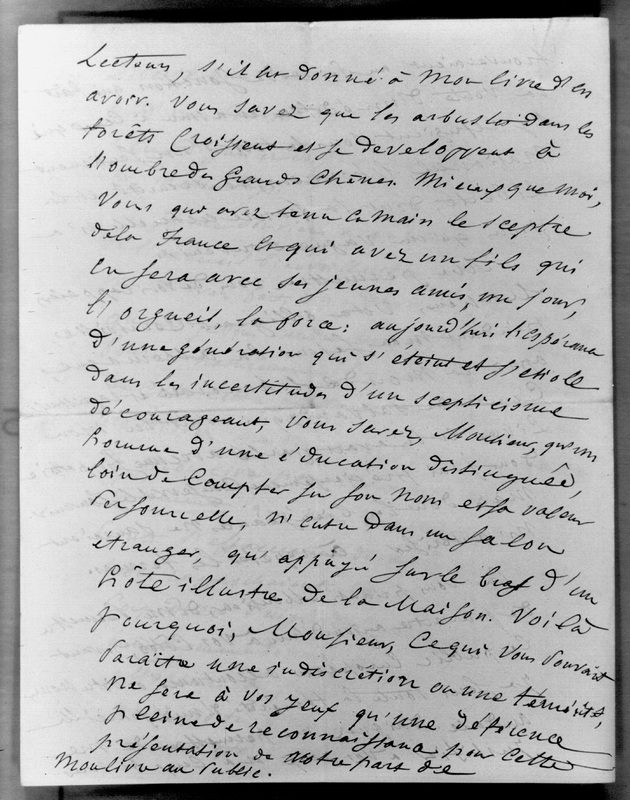 Lecteurs, s'il est donné à mon livre d'en
avoir. Vous savez que les arbustes dans les
forêts croissent et se developpent à
l'ombre des grands chênes. Mieux que moi,
vous qui avez tenu en main le sceptre
de la France et qui avez un fils qui
en sera avec ses jeunes amis, un jour,
l'orgueil, la force: aujourd'hui l'espérance
d'une génération qui s'éteint et s'etiole
dans les incertitudes d'un scepticisme
décourageant, vous savez, Monsieur, qu'un
homme d'une éducation distinguée,
loin de compter sur son nom et sa valeur
personnelle, n'entre dans un salon
étranger, qu'appuyé sur le bras d'un
hôte illustre de la Maison. Voilà
pourquoi, Monsieur, ce qui vous pouvait
paraître une indiscrétion ou une temérité,
ne sera à vos yeux qu'une déférence
pleine de reconnaissance pour cette
présentation de votre part de
mon livre au public.